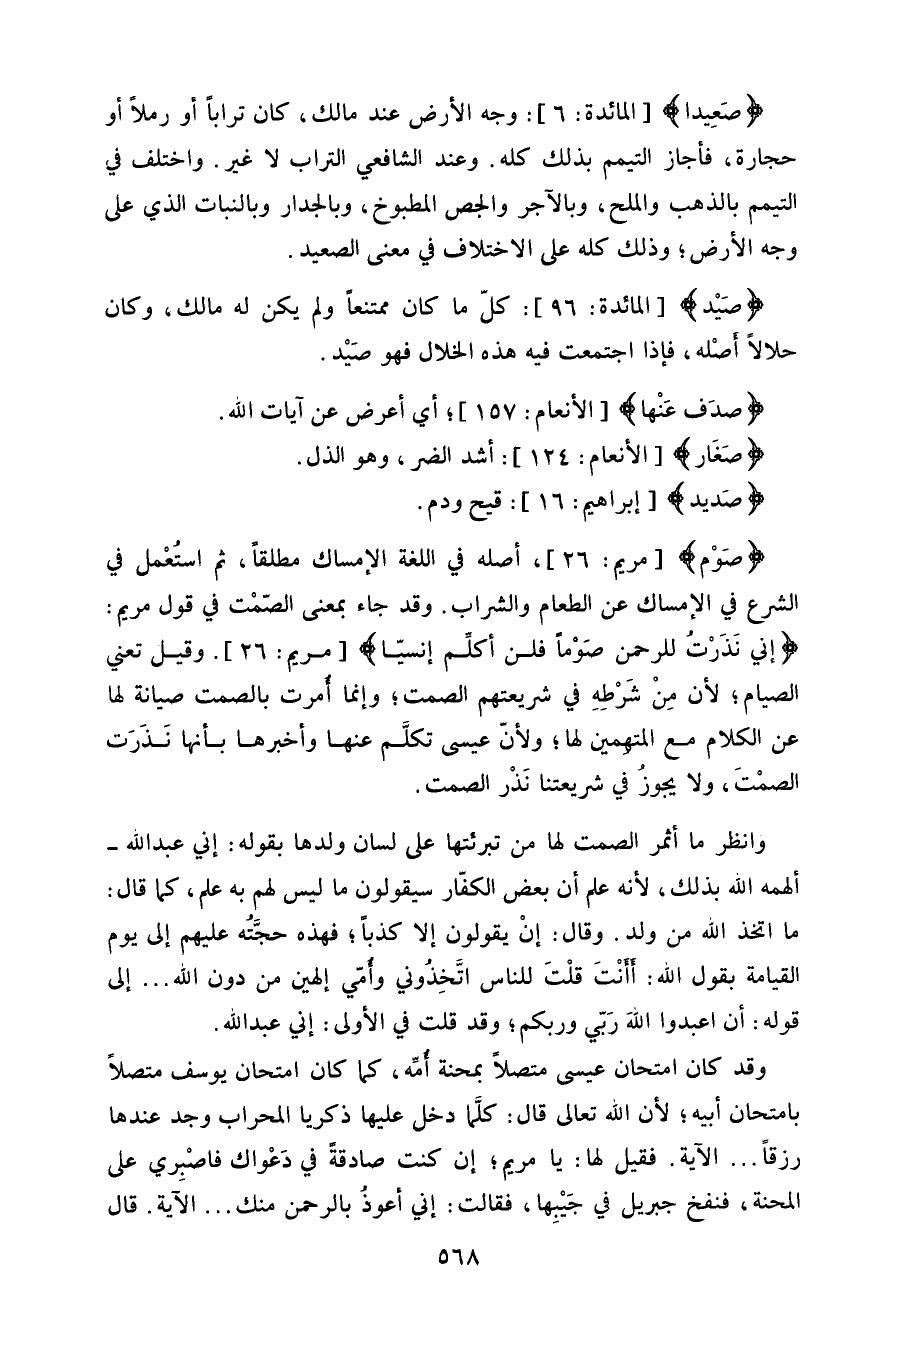 ﴿صَعِيدا﴾ [ المائدة: ٦ ]: وجه الأرض عند مالك، كان تراباً أو رملاً أو
حجارة، فأجاز التيمم بذلك كله. وعند الشافعي التراب لا غير. واختلف في
التيمم بالذهب والملح، وبالآجر والجص المطبوخ، وبالجدار وبالنبات الذي على
وجه الأرض؛ وذلك كله على الاختلاف في معنى الصعيد.
﴿صَيْد﴾ [ المائدة: ٩٦ ]: كلّ ما كان ممتنعاً ولم يكن له مالك، وكان
حلالاً أَصْله، فإذا اجتمعت فيه هذه الخلال فهو صَيْد.
﴿صدَف عَنْها﴾ [ الأنعام: ١٥٧ ]؛ أي أعرض عن آيات الله.
﴿صَغَار﴾ [ الأنعام: ١٢٤ ]: أشد الضر، وهو الذل.
﴿صَديد﴾ [ إبراهيم: ١٦ ]: قيح ودم.
﴿صَوْم﴾ [ مريم: ٢٦ ]، أصله في اللغة الإمساك مطلقاً، ثم استُعْمل في
الشرع في الإمساك عن الطعام والشراب. وقد جاء بمعنى الصّمْت في قول مريم:
﴿إني نَذَرْتُ للرحمن صَوْماً فلـن أكلِّـم إنسيّـا﴾ [ مـريم: ٢٦ ]. وقيـل تعني
الصيام؛ لأن مِنْ شَرْطِهِ في شريعتهم الصمت؛ وإنما أُمرت بالصمت صيانة لها
عن الكلام مـع المتهمين لها؛ ولأنّ عيسى تكلَّـم عنهـا وأخبرهـا بـأنها نَـذَرَت
الصمْتَ، ولا يجوزُ في شريعتنا نَذْر الصمت.
وانظر ما أثمر الصمت لها من تبرئتها على لسان ولدها بقوله: إني عبدالله ـ
ألهمه الله بذلك، لأنه علم أن بعض الكفّار سيقولون ما ليس لهم به علم، كما قال:
ما اتخذ الله من ولد. وقال: إنْ يقولون إلا كذباً؛ فهذه حجَّتُه عليهم إلى يوم
القيامة بقول الله: أَأَنْتَ قلْتَ للناس اتَّخِذُوني وأُمّي إلهين من دون الله... إلى
قوله: أن اعبدوا اللهَ رَبّي وربكم؛ وقد قلت في الأولى: إني عبدالله.
وقد كان امتحان عيسى متصلاً بمحنة أُمِّه، كما كان امتحان يوسف متصلاً
بامتحان أبيه؛ لأن الله تعالى قال: كلَّما دخل عليها ذكريا المحراب وجد عندها
رزقاً... الآية. فقيل لها: يا مريم؛ إن كنت صادقةً في دَعْواك فاصْبِري على
المحنة، فنفخ جبريل في جَيْبِها، فقالت: إني أعوذُ بالرحمن منك... الآية. قال
٥٦٨